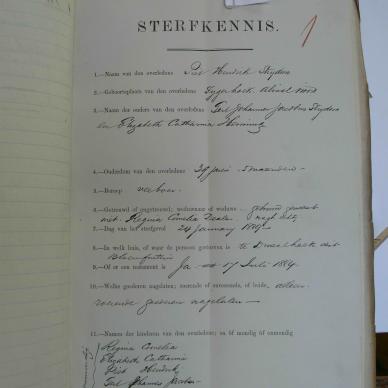 STERFKENNIS.
1.—Naam van den overledene Piet Hendrik Snyders
2.—Geboorteplaats van den overledene Tygerhoek Aliwal Nord
3.—Naam der ouders van den overledene Carl Johannes Jacobus Snyders
en Elizabeth Catharina
4.—Ouderdom van den overledene 29 jaar 5 maanden
5.—Beroep veeboer
6.—Getrouwd of ongetrouwd; weduwnaar of weduwe
met Regina Cornelia
7.—Dag van het sterfgeval 24 January
8.—In welk huis, of waar de persoon gestorven is te dist
Bloemfontein
9.—Of er een testament is Ja 17 Juli 1884
10.—Welke goederen nagelaten; roerende of onroerende, of beide, alleen
roerende goederen nagelaten
11.—Namen der kinderen van den overledene; en òf mondig òf onmondig
Regina Cornelia
Elizabeth Catharina
Piet Hendrik
Carl Johannes Jacobus